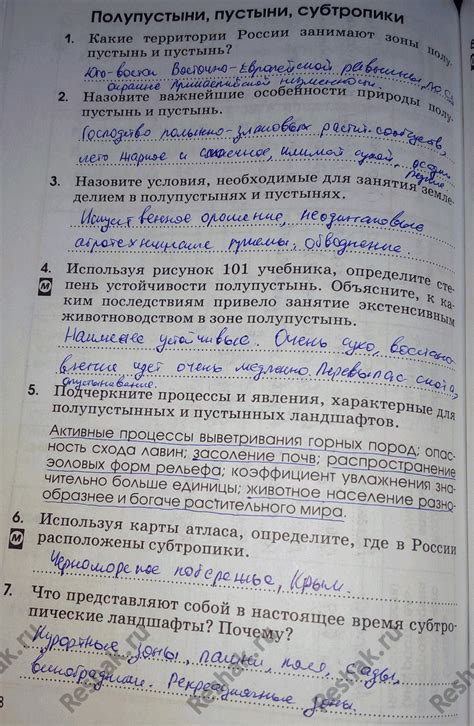 Полупустыни, пустыни, субтропики
1. Какие территории России занимают зоны полу-
пустынь и пустынь?
Юго-восток Восточно-Европейской равнины,
окраине Прикаспийской низменности.
2. Назовите важнейшие особенности природы полу-
пустынь и пустынь.
Господство полынно-злаковых растит. сообществ,
лето жаркое и солнечное, климат сухой,
3. Назовите условия, необходимые для занятия земле-
делием в полупустынях и пустынях.
Искусственное орошение,
агротехнические приемы, обводнение.
4. Используя рисунок 101 учебника, определите сте-
М пень устойчивости полупустынь. Объясните, к ка-
ким последствиям привело занятие экстенсивным
животноводством в зоне полупустынь.
Наименее устойчивые. Очень сухо, восстано-
вление идет очень медленно. Перевыпас скота,
опустынивание.
5. Подчеркните процессы и явления, характерные для
полупустынных и пустынных ландшафтов.
Активные процессы выветривания горных пород; опас-
ность схода лавин; засоление почв; распространение
эоловых форм рельефа; коэффициент увлажнения зна-
чительно больше единицы; животное население разно-
образнее и богаче растительного мира.
6. Используя карты атласа, определите, где в России
М расположены субтропики.
Черноморское побережье, Крым.
7. Что представляют собой в настоящее время субтро-
пические ландшафты? Почему?
Курортные зоны, пашни, поля, сады,
виноградники. Рекреационные зоны.
8
Reshak.ru
Reshak.ru
Reshak.ru